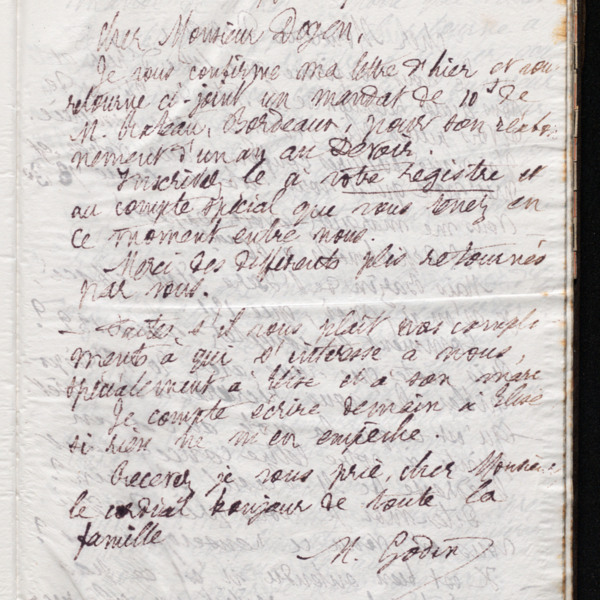 Cher Monsieur Dogen,
Je vous confirme ma lettre d'hier et vous
retourne ci-joint un mandat de 10f de
M. Bordeaux, pour son réabon-
nement d'un an au Devoir.
Inscrivez le à votre registre et
au compte spécial que vous tenez en
ce moment entre nous.
Merci des différents plis retournés
par vous.
– Faites s'il vous plaît nos compli-
ments à qui s'intéresse à nous,
spécialement à Élise et à son mari
Je compte écrire demain à Élise
si rien ne m'en empêche.
Recevez je vous prie, cher Monsieur
le cordial bonjour de toute la
famille
M. Godin